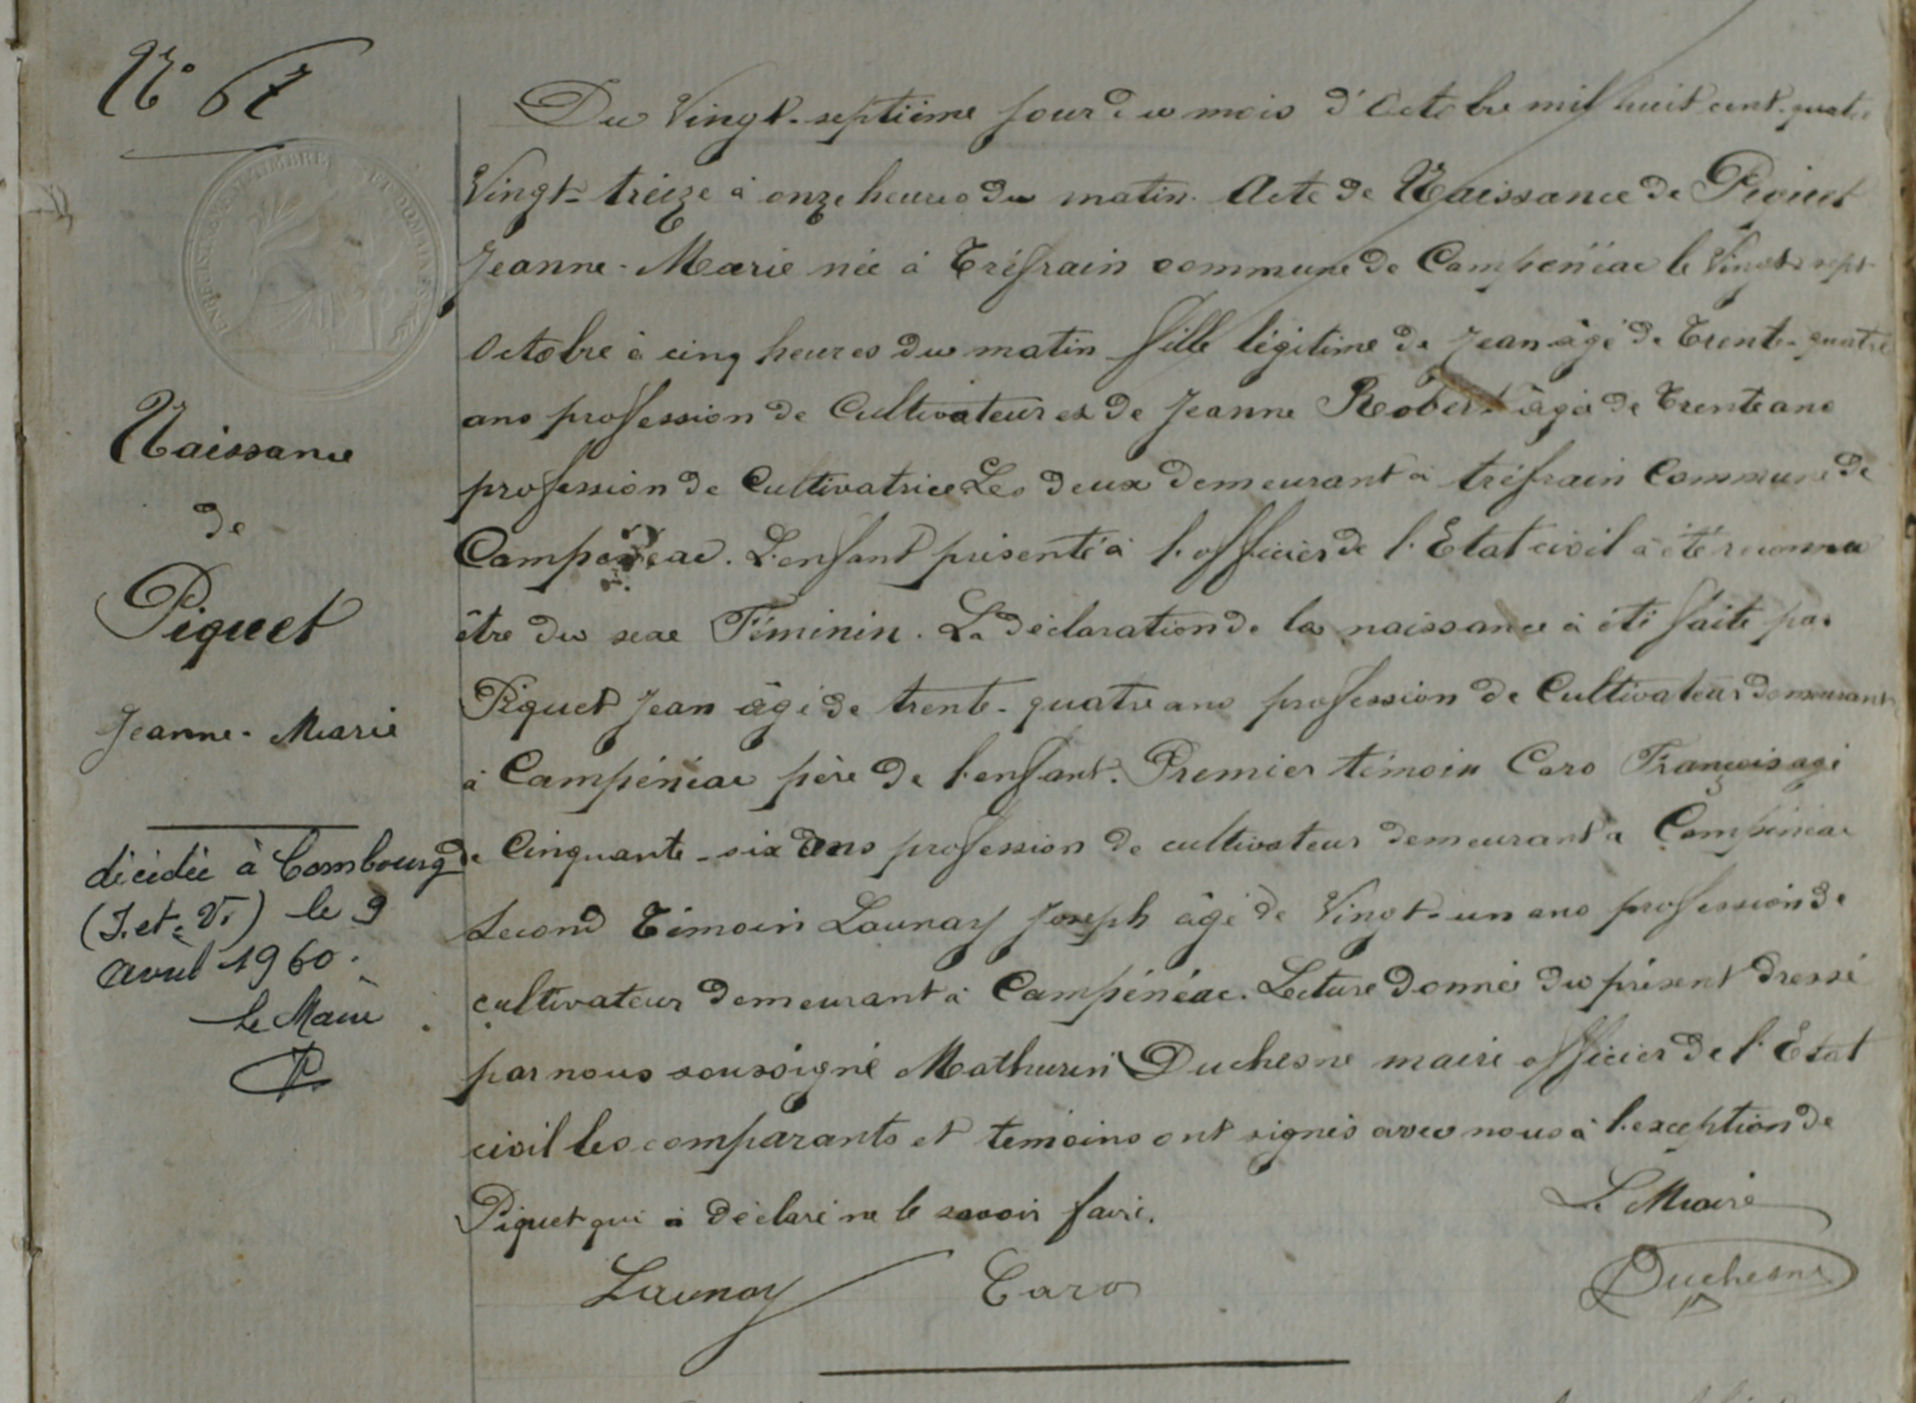 N° 67
Naissance
de
Piquet
Jeanne-Marie
décédée à Combourg
(I. et. V.) le 9
avril 1960.
Le Maire
Du Vingt-septième jour du mois d'Octobre mil huit cent quatre
Vingt-treize à onze heures du matin. Acte de Naissance de Piquet
Jeanne-Marie née à Tréfrain commune de Campénéac le Vingt-sept
Octobre à cinq heures du matin fille légitime de Jean âgé de Trente-quatre
ans profession de Cultivateur et de Jeanne Robert âgé de Trente ans
profession de Cultivatrice Les deux demeurant à tréfrain Commune de
Campénéac. L'enfant présenté à l'officier de l'Etat civil à été reconnu
être du sexe Féminin. La déclaration de la naissance à été faite par
Piquet Jean âgé de trente-quatre ans profession de Cultivateur demeurant
à Campénéac père de l'enfant. Premier témoin Caro François agé
de Cinquante-six ans profession de cultivateur demeurant à Campénéac
Second Témoin Launay Joseph âgé de Vingt-un ans profession de
cultivateur demeurant à Campénéac. Lecture donnée du présent dressé
par nous soussigné Mathurin Duchesne maire officier de l'Etat
civil les comparants et temoins ont signés avec nous à l'exception de
Piquet qui à déclaré ne le savoir faire.
Le Maire
Launay Caro Duchesne